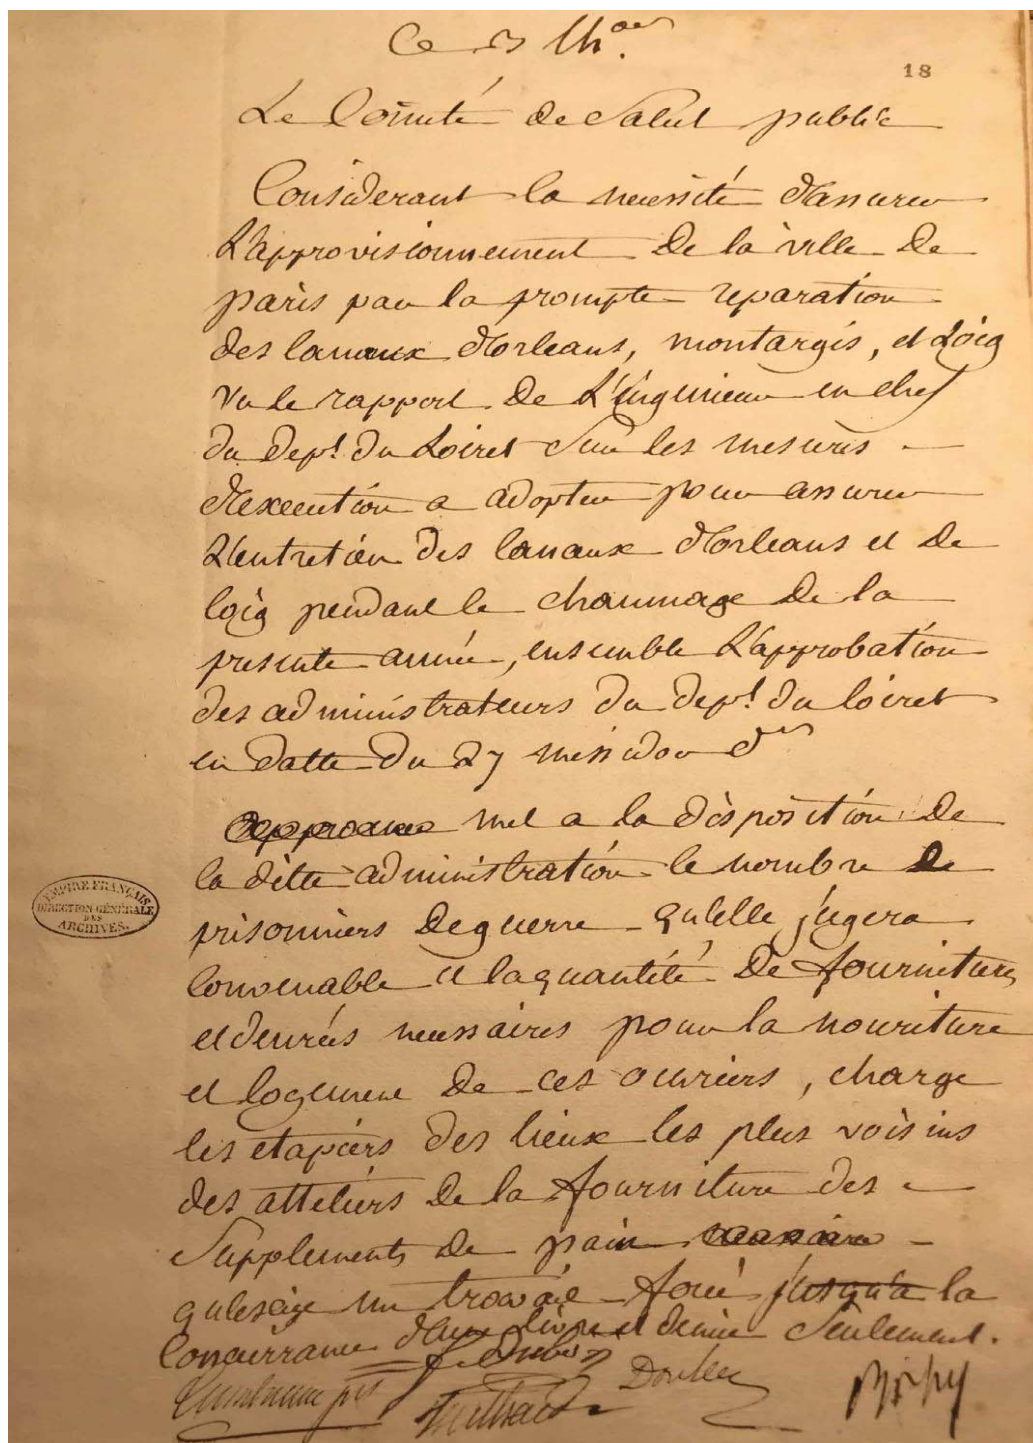 Ce 3 th.or
18
Le Comité de Salut public
Considerant la necessité d'assurer
L'approvisionnement de la ville de
paris par la prompte reparation
des Canaux d'orleans, montargis, et Loig
Vu le rapport de L'ingenieur en chef
du dep.t du Loiret Sur les mesures
d'execution a adopter pour assurer
L'entretien des Canaux d'orleans et de
loig pendant le chaumage de la
presente année, ensemble L'approbation
des administrateurs du dep.t du loiret
en datte du 27 messidor d.er
approuve met a la disposition de
la ditte administration le nombre de
prisonniers de guerre qu'elle jugera
Convenable et la quantité de fournitures
et denrées necessaires pour la nouriture
et logement de ces ouvriers, charge
les etapiers des lieux les plus voisins
des atteliers de la fourniture des
Supplements de pain
qu'exige un travail forcé jusqu'a la
Concurrance d'une Livre et demie Seulement.
Cambacérès Treilhard Doulcet
EMPIRE FRANÇAIS
DIRECTION GÉNÉRALE
DES
ARCHIVES.